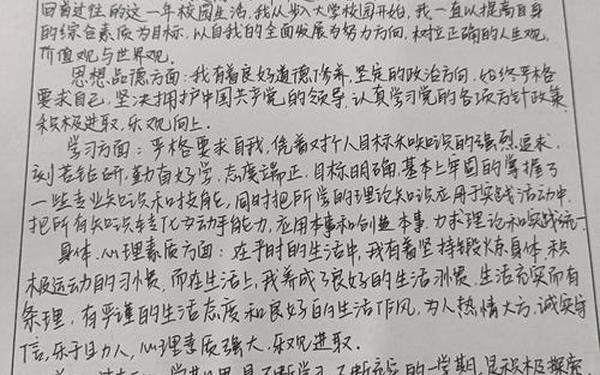 回首过往的这一年校园生活,我从步入大学校园开始,我一直以提高自身
的综合素质为目标,以自我的全面发展为努力方向,树立正确的人生观,
价值观与世界观。
思想品德方面:我有着良好道德修养,坚定的政治方向,始终严格
要求自己,坚决拥护中国共产党的领导,认真学习党的各项方针政策,
积极进取,乐观向上。
学习方面:严格要求自我,凭着对个人目标和知识的强烈追求,
刻苦钻研,勤奋好学,态度端正,目标明确,基本上牢固的掌握了
一些专业知识和技能,同时把所学的理论知识应用于实践活动中,
把所有知识转化为动手能力,应用本事和创造本事,力求理论和实践统一
身体、心理素质方面:在平时的生活中,我有着坚持锻炼身体,积
极运动的习惯,而在生活上,我养成了良好的生活习惯,生活充实而有
条理,有严谨的生活态度和良好的生活作风,为人热情大方,诚实守
信,乐于助人,心理素质强大,乐观进取。
不断学习、不断充实的一学期,是积极探索